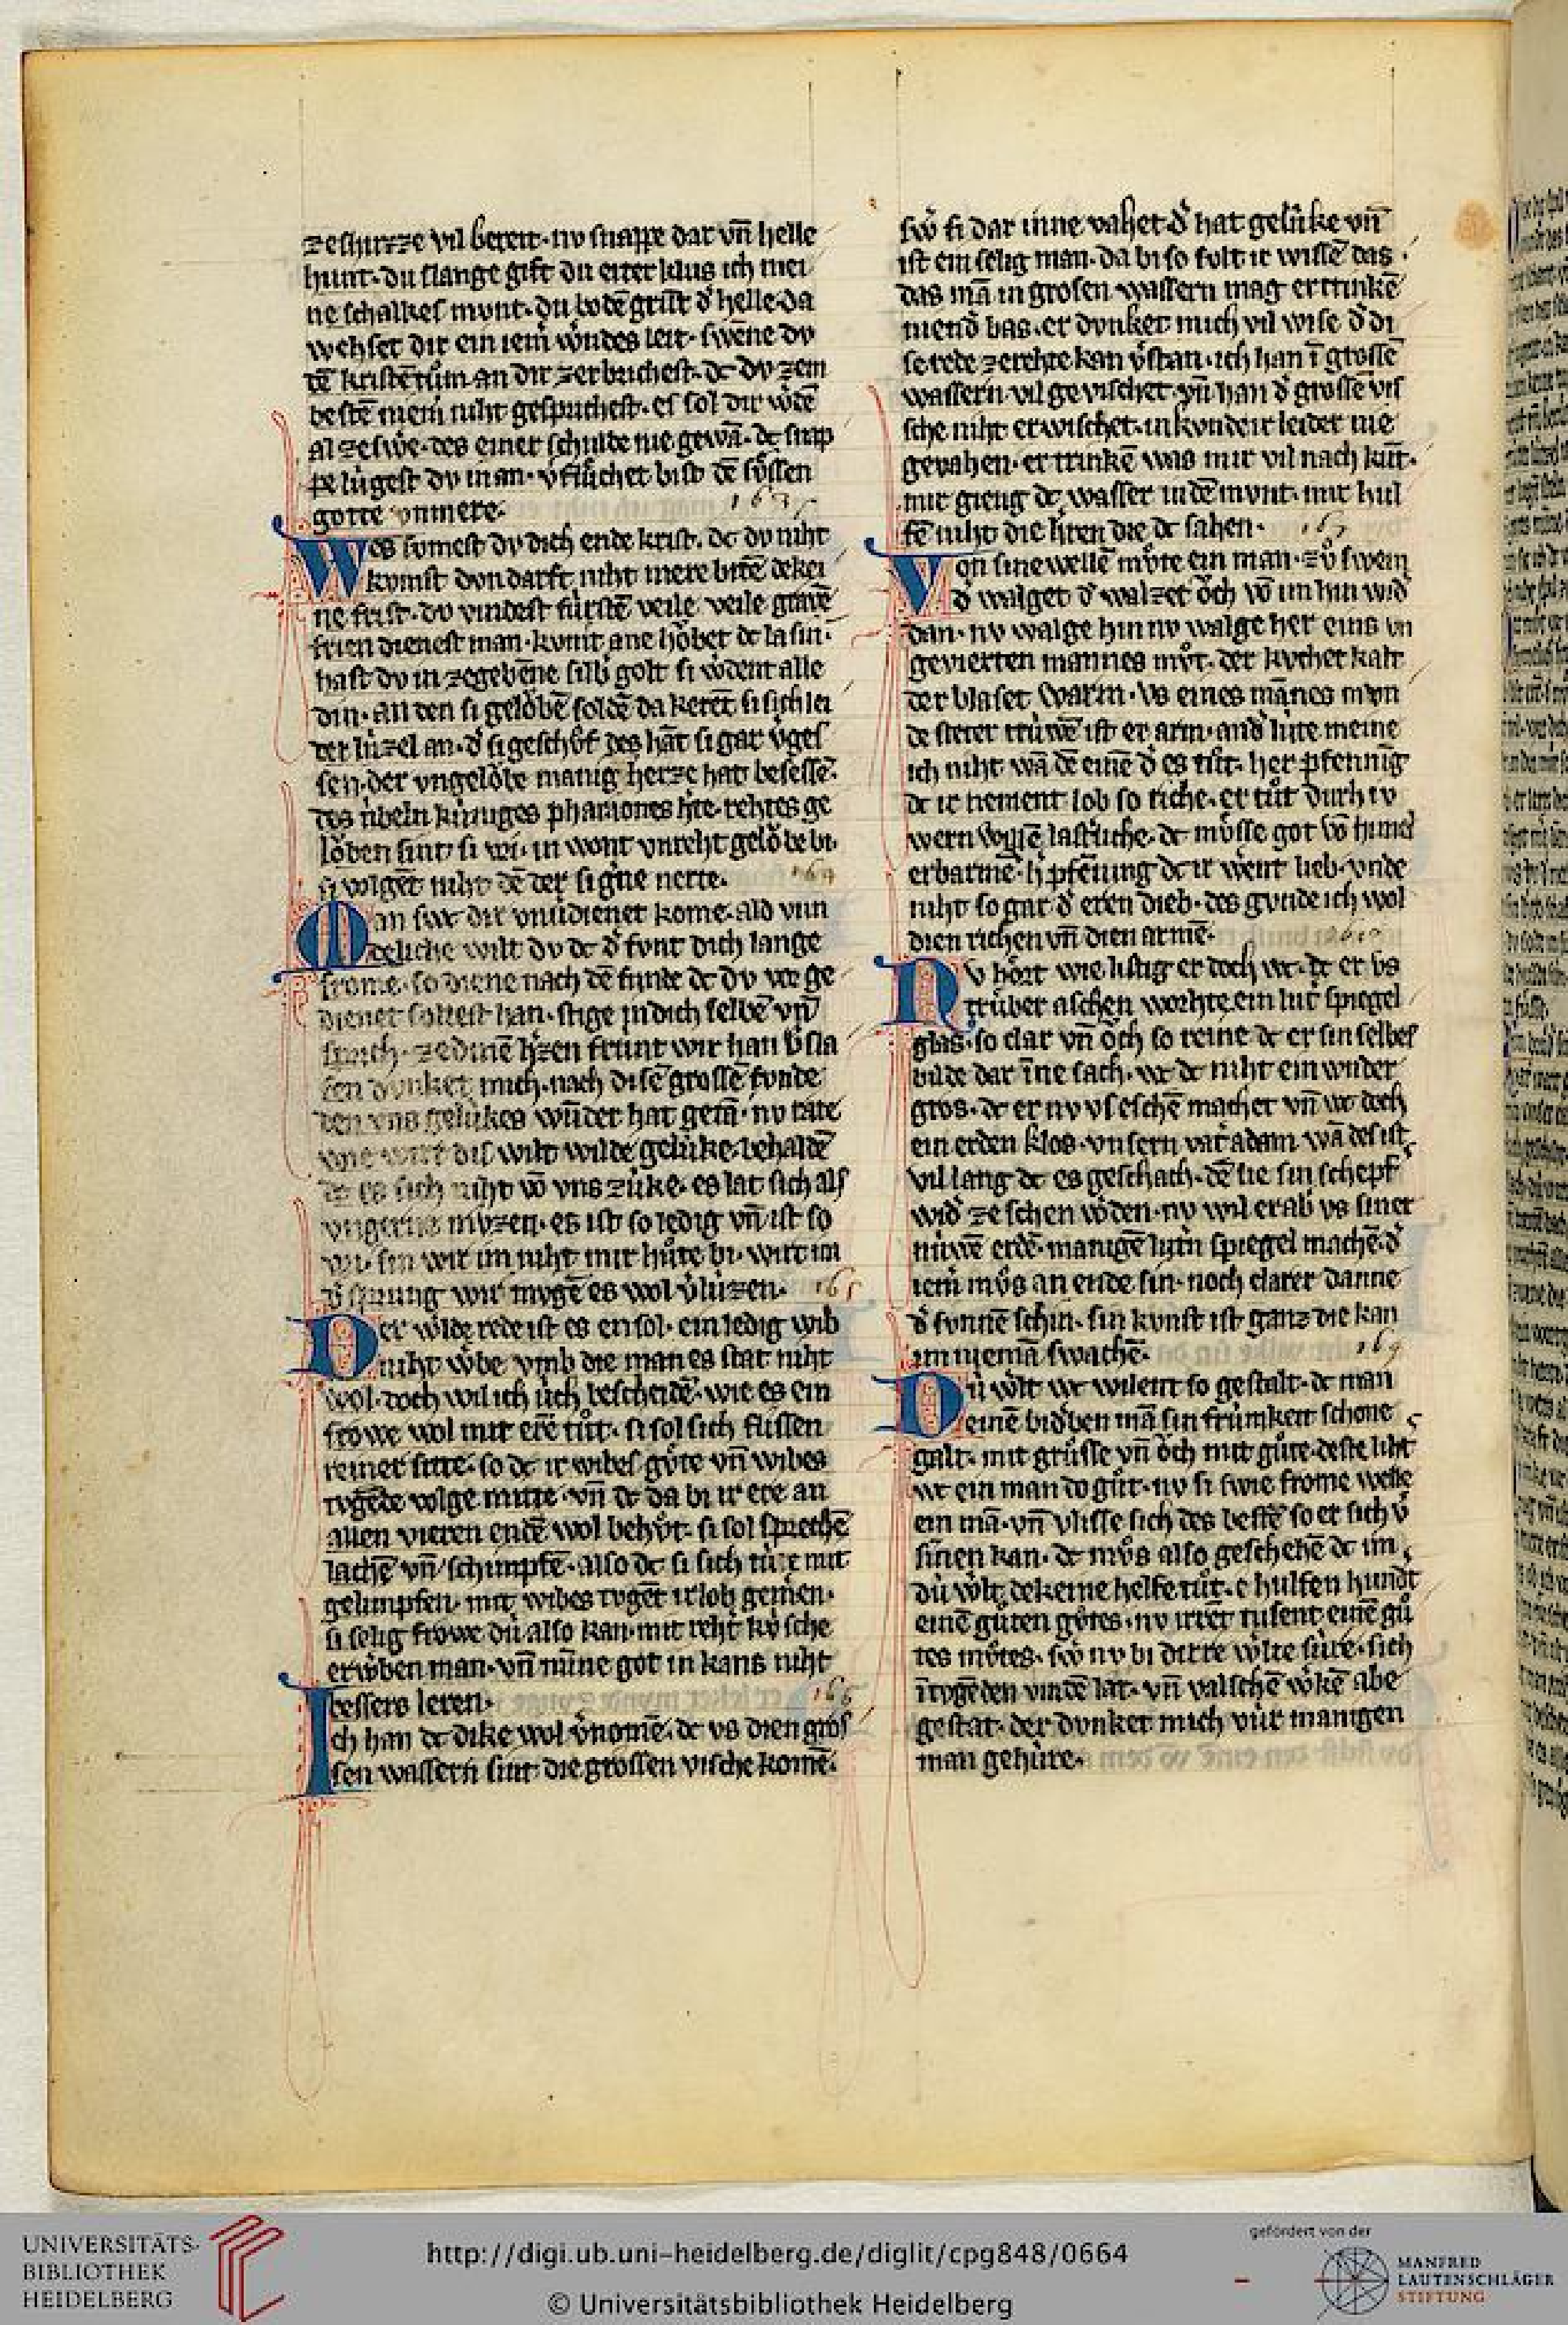 zeschurzze vil bereit· nv snappe dar vn̄ helle
hunt· du slange gift du eiter klus ich mei
ne schalkes mvnt· du bodē grūt d' helle· da
wehset dir ein iem̄ wn̄des leit· swēne dv
dē kristētům an dir zerbrichest· dc dv zem
bestē niem̄ niht gesprichest· es sol dir w'dē
al ze swe· des einer schulde nie gewā· dc snap
pe lugest dv in an· v'flůchet bist dē sv̊ssen
gotte vnmere·
163
Wes svmest dv dich ende krist· dc dv niht
kvmst don darft niht mere bitē dekei
ne frist· dv vindest fúrstē veile veile gravē
frien dienest man· kvmt ane hŏbet dc la sin·
hast dv in zegebēne silb' golt si w'dent alle
din· an den si gelŏbē soldē da kerēt si sich lei
der lúzel an· d' si geschůf des hāt si gar v'ges
sen· der vngelŏbe manig herze hat besessē·
des úbeln kúniges pharaones h'te· rehtes ge
lŏben sint si vri· in wont vnreht gelŏbe bi·
si volgēt niht dē der si g'ne nerte·
164
Man swc dir vnv'dienet kome· ald vnn
deliche wilt dv dc d' fvnt dich lange
frome· so diene nach dē funde dc dv vor ge
dienet soltest han· stige in dich selbē vn̄
sprich· ze dinē h'zen frunt wir han v'sla
fen dvnket mich· nach disē grossē fvnde
den vns gelúkes wn̄der hat getā· nv rate
wie wirt dis wilt wilde gelúke· behaldē
dc es sich niht vō vns zúke· es lat sich als
vngerne mvzen· es ist so ledig vn̄ ist so
vri· sin wir im niht mit hůte bi· wirt im
d' sprung wir mvgē es wol v'lúzen·
165
Der w'lde rede ist es ensol· ein ledig wib
niht w'be vmb die man es stat niht
wol· doch wil ich úch bescheidē· wie es ein
frowe wol mit erē tůt· si sol sich flissen
reiner sitte· so dc ir wibes gv̊te vn̄ wibes
tvgēde volge mitte· vn̄ dc da bi ir ere an
allen vieren endē wol behv̊t· si sol sprechē
lachē vn̄ schimpfē· also dc si sich túre mit
gelimpfen· mit wibes tvgēt ir lob gemeren·
si selig frowe dú also kan· mit reht' kv́sche
erw'ben man· vn̄ minne got in kans niht
bessers leren·
166
Ich han dc dike wol v'nomē· dc vs dien gros
sen wassern sint die grossen vische komē·
sw' si dar inne vahet d' hat gelúke vn̄
ist ein selig man· da bi so solt ir wissē das·
das mā in grosen wassern mag ertrinkē
niend' bas· er dvnket mich vil wise d' di
se rede ze rehte kan v'stan· ich han ī grossē
wassern vil gevischet· vn̄ han d' grossē vis
sche niht erwischet· in kvnde ir leider nie
gevahen· ertrinkē was mir vil nach kūt·
mir gieng dc wasser in dē mvnt· mir hul
fē niht die h'ren die dc sahen·
167
Von sinewellē mv̊te ein man· zv̊ swem
d' walget d' walzet ŏch vō im hin wid'
dan· nv walge hin nv walge her eins vn
gevierten mannes mv̊t· der kvchet kalt
der blaset warm· vs eines mānes mvn
de steter trúwē ist er arm· and' lúte meine
ich niht wā dē einē d' es tůt· her pfenning
dc ir nement lob so riche· er tůt durh iv
wern willē lasterliche· dc mv̊sse got vō himel
erbarmē· h' pfenning dc ir w'ent lieb· vnde
niht so gar d' eren dieb· des gvnde ich wol
dien richen vn̄ dien armē·
168
Nv hŏrt wie listig er doch wc· dc er vs
trúber aschen worhte ein lut' spiegel
glas· so clar vn̄ ŏch so reine dc er sin selbes
bilde dar īne sach· wc dc niht ein wnder
gros· dc er nv vs eschē machet vn̄ wc doch
ein erden klos· vnsern vat' adam· wā des ist
vil lang dc es geschach· dē lie sin schepf'
wid' ze schen w'den· nv wil er ab' vs siner
núwē erdē· manigē lut'n spiegel machē· d'
iem̄ mv̊s an ende sin· noch clarer danne
d' svnnē schin· sin kvnst ist ganz die kan
im niemā swachē·
169
Dú w'lt wc wilent so gestalt· dc man
einē bid'ben mā sin frúmkeit schone
galt· mit grůsse vn̄ ŏch mit gůte· deste liht'
wc ein man do gůt· nv si swie frome welle
ein mā· vn̄ vlisse sich des bestē so er sich v'
sinnen kan· dc mv̊s also geschehē dc im
dú w'lt dekeine helfe tůt· e hulfen hund't
einē gůten gv̊tes· nv irrēt tusent einē gů
tes mv̊tes· sw' nv bi dirre w'lte súre· sich
ī tvgēden vindē lat· vn̄ valschē w'kē abe
gestat· der dvnket mich vúr manigen
man gehúre·
UNIVERSITÄTS-
BIBLIOTHEK
HEIDELBERG
http://digi.ub.uni-heidelberg.de/diglit/cpg848/0664
© Universitätsbibliothek Heidelberg
gefördert von der
MANFRED
LAUTENSCHLÄGER
STIFTUNG